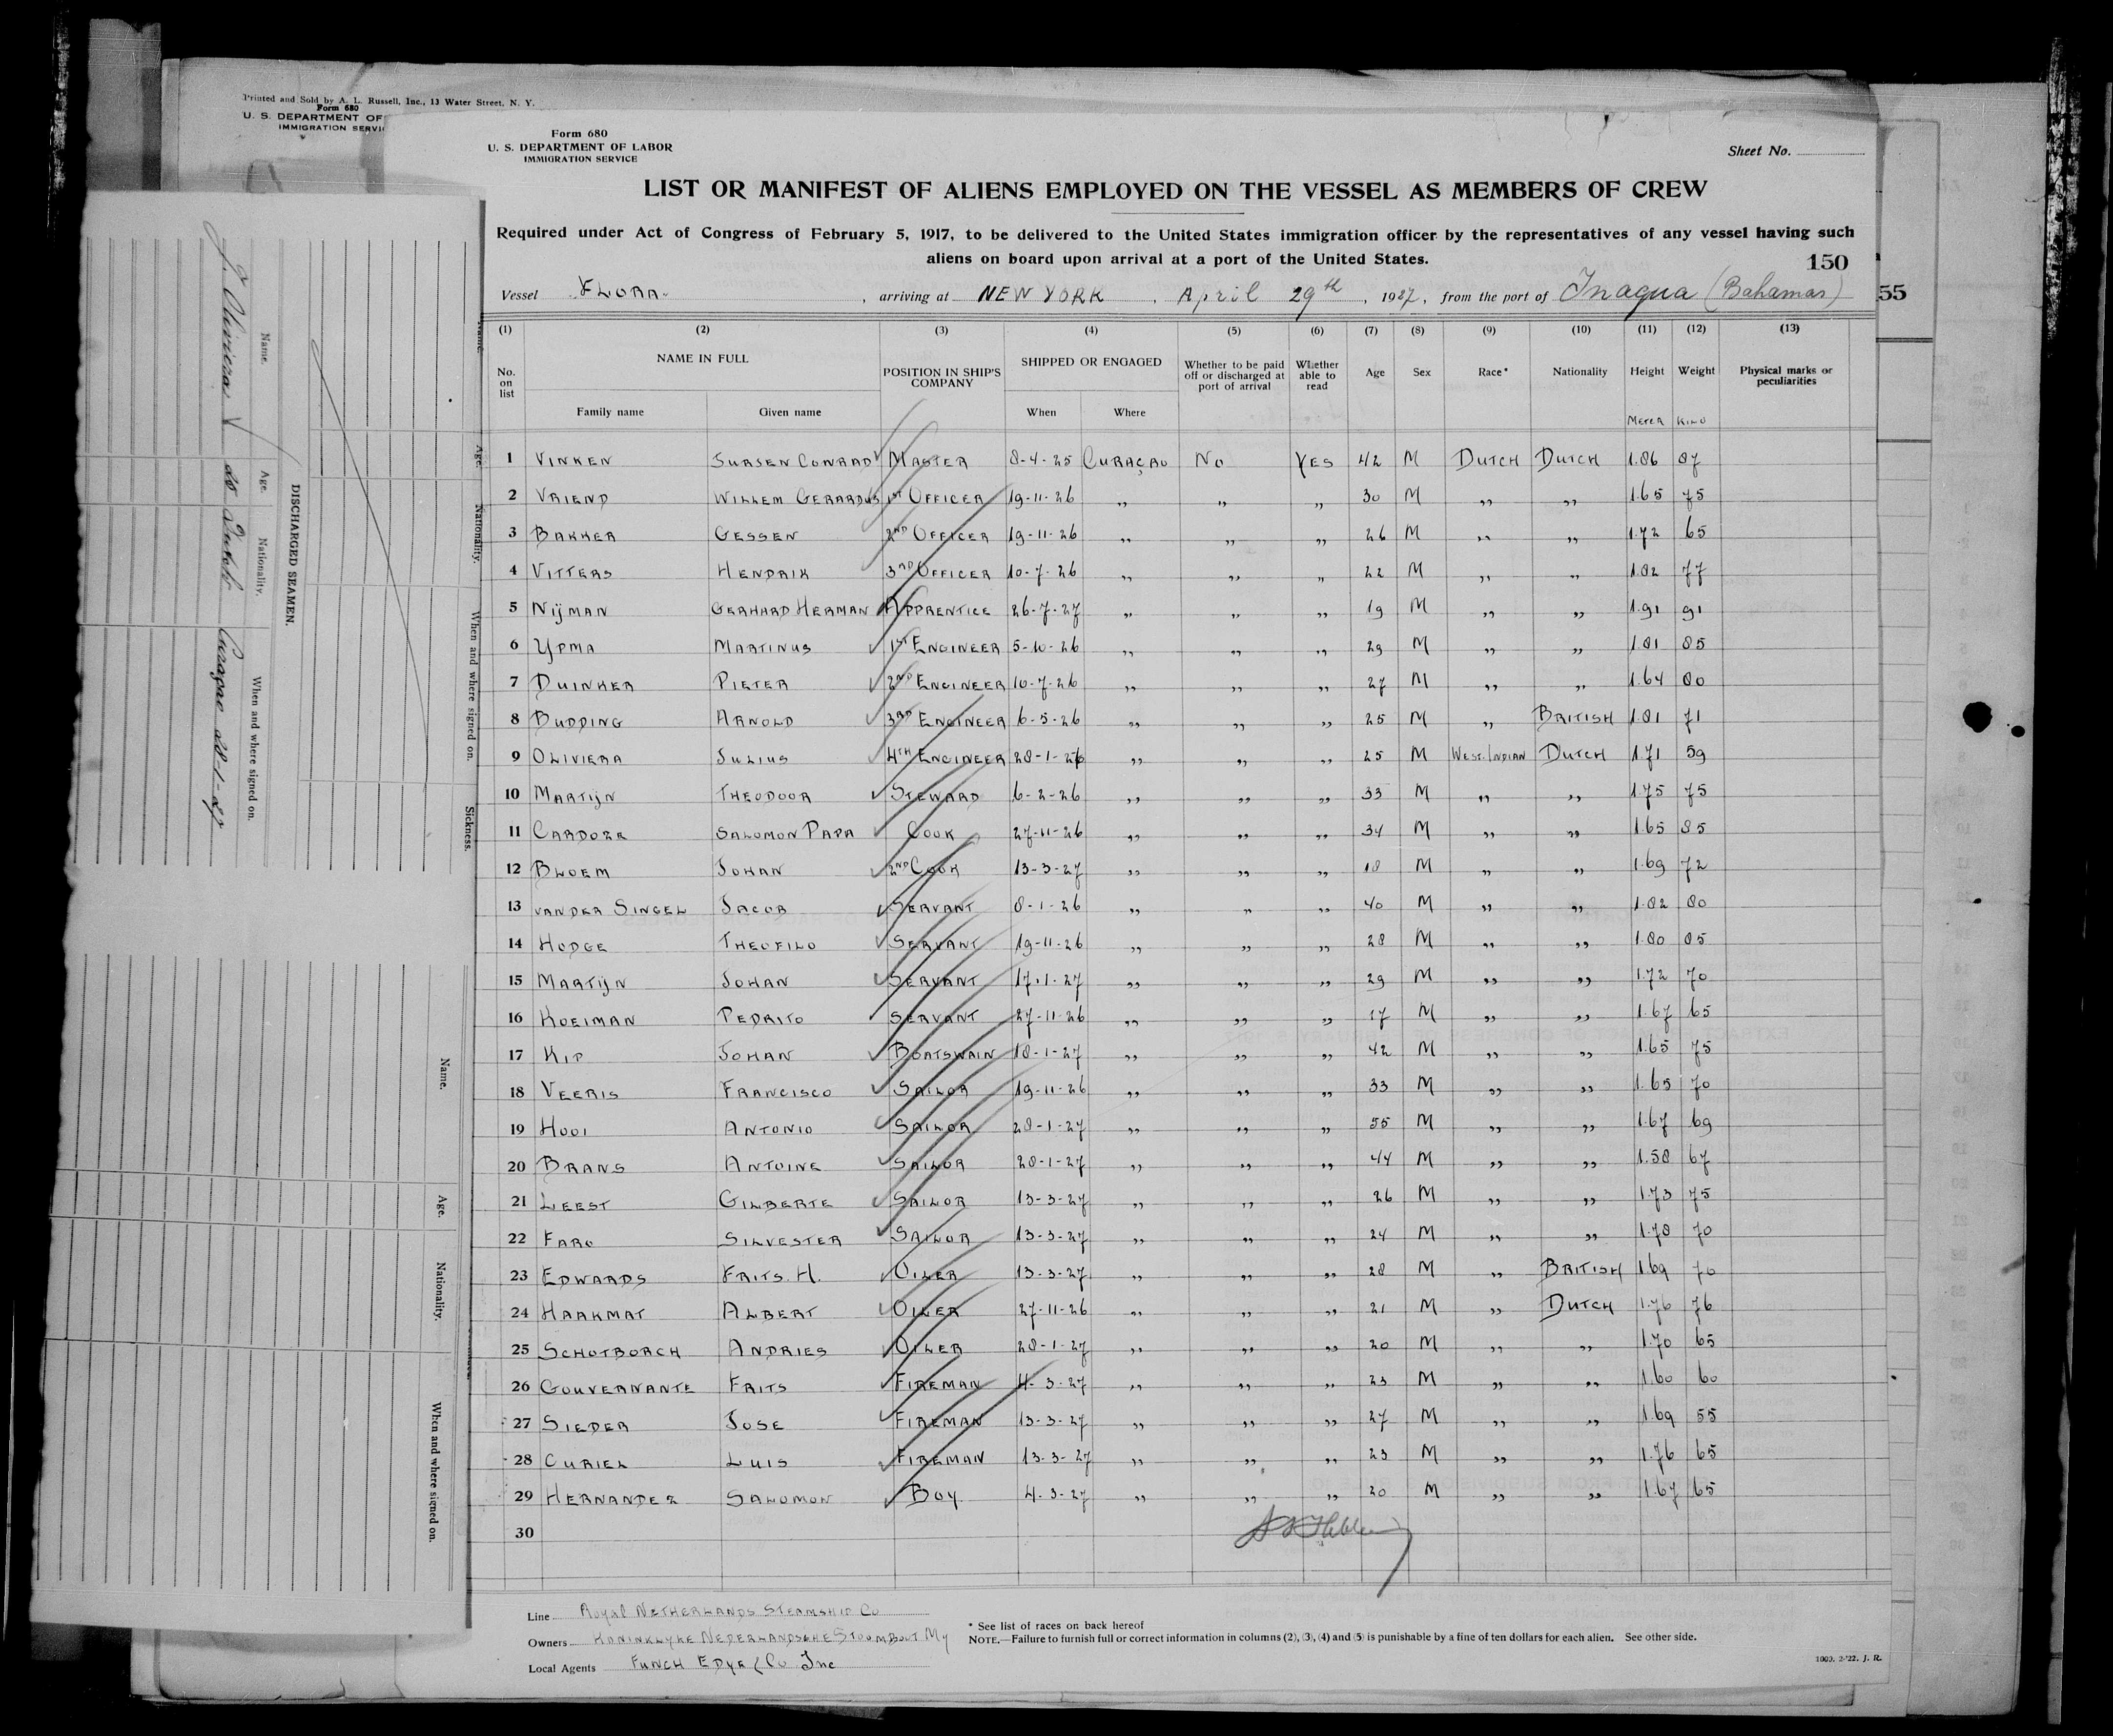 Printed and Sold by A. L. Russell, Inc., 13 Water Street, N. Y.
Form 680
U. S. DEPARTMENT OF
IMMIGRATION SERVI
Form 680
U. S. DEPARTMENT OF LABOR
IMMIGRATION SERVICE
Sheet No.
LIST OR MANIFEST OF ALIENS EMPLOYED ON THE VESSEL AS MEMBERS OF CREW
Required under Act of Congress of February 5, 1917, to be delivered to the United States immigration officer by the representatives of any vessel having such
aliens on board upon arrival at a port of the United States.
150
55
Vessel FLORA, arriving at NEW YORK, April 29th, 1927, from the port of Inagua (Bahamas)
(1) (2) (3) (4) (5) (6) (7) (8) (9) (10) (11) (12) (13)
No. on list NAME IN FULL POSITION IN SHIP'S COMPANY SHIPPED OR ENGAGED Whether to be paid off or discharged at port of arrival Whether able to read Age Sex Race* Nationality Height Weight Physical marks or peculiarities
Family name Given name When Where METER KILO
1 VINKEN JURSEN CONRAD MASTER 8-4-25 CURAÇAO NO YES 42 M DUTCH DUTCH 1.86 87
2 VRIEND WILLEM GERARDUS 1ST OFFICER 19-11-26 ,, ,, ,, 30 M ,, ,, 1.65 75
3 BAKKER GESSEN 2ND OFFICER 19-11-26 ,, ,, ,, 26 M ,, ,, 1.72 65
4 VITTERS HENDRIK 3RD OFFICER 10-7-26 ,, ,, ,, 22 M ,, ,, 1.82 77
5 NIJMAN GERHARD HERMAN APPRENTICE 26-7-27 ,, ,, ,, 19 M ,, ,, 1.91 91
6 YPMA MARTINUS 1ST ENGINEER 5-10-26 ,, ,, ,, 29 M ,, ,, 1.81 85
7 DUINKER PIETER 2ND ENGINEER 10-7-26 ,, ,, ,, 27 M ,, ,, 1.64 80
8 BUDDING ARNOLD 3RD ENGINEER 6-5-26 ,, ,, ,, 25 M ,, BRITISH 1.81 71
9 OLIVIERA JULIUS 4TH ENGINEER 28-1-26 ,, ,, ,, 25 M WEST. INDIAN DUTCH 1.71 59
10 MARTIJN THEODOOR STEWARD 6-2-26 ,, ,, ,, 33 M ,, ,, 1.75 75
11 CARDOZE SALOMON PAPA COOK 27-11-26 ,, ,, ,, 34 M ,, ,, 1.65 85
12 BLOEM JOHAN 2ND COOK 13-3-27 ,, ,, ,, 18 M ,, ,, 1.69 72
13 VAN DER SINGEL JACOB SERVANT 8-1-26 ,, ,, ,, 40 M ,, ,, 1.82 80
14 HODGE THEOFILO SERVANT 19-11-26 ,, ,, ,, 28 M ,, ,, 1.80 85
15 MARTIJN JOHAN SERVANT 17-1-27 ,, ,, ,, 29 M ,, ,, 1.72 70
16 KOEIMAN PEDRITO SERVANT 27-11-26 ,, ,, ,, 17 M ,, ,, 1.67 65
17 KIP JOHAN BOATSWAIN 18-1-27 ,, ,, ,, 42 M ,, ,, 1.65 75
18 VEERIS FRANCISCO SAILOR 19-11-26 ,, ,, ,, 33 M ,, ,, 1.65 70
19 HOOI ANTONIO SAILOR 28-1-27 ,, ,, ,, 55 M ,, ,, 1.67 69
20 BRANS ANTOINE SAILOR 28-1-27 ,, ,, ,, 44 M ,, ,, 1.58 67
21 LEEST GILBERTE SAILOR 13-3-27 ,, ,, ,, 26 M ,, ,, 1.73 75
22 FARO SILVESTER SAILOR 13-3-27 ,, ,, ,, 24 M ,, ,, 1.78 70
23 EDWARDS FRITS. H. OILER 13-3-27 ,, ,, ,, 28 M ,, BRITISH 1.69 70
24 HAAKMAT ALBERT OILER 27-11-26 ,, ,, ,, 21 M ,, DUTCH 1.76 76
25 SCHOTBORCH ANDRIES OILER 28-1-27 ,, ,, ,, 20 M ,, ,, 1.70 65
26 GOUVERNANTE FRITS FIREMAN 4-3-27 ,, ,, ,, 23 M ,, ,, 1.60 60
27 SIEDER JOSE FIREMAN 13-3-27 ,, ,, ,, 27 M ,, ,, 1.69 55
28 CURIEL LUIS FIREMAN 13-3-27 ,, ,, ,, 23 M ,, ,, 1.76 65
29 HERNANDEZ SALOMON BOY 4-3-27 ,, ,, ,, 20 M ,, ,, 1.67 65
30
Line Royal NETHERLANDS STEAMSHIP Co
Owners KONINKLYKE NEDERLANDSCHE STOOMBOOT My
Local Agents FUNCH EDYE & Co Inc
* See list of races on back hereof
NOTE.—Failure to furnish full or correct information in columns (2), (3), (4) and (5) is punishable by a fine of ten dollars for each alien. See other side.
1000. 2-'22. J. R.
Name. Age. Nationality. When and where signed on. Sickness.
DISCHARGED SEAMEN.
Name. Age. Nationality. When and where signed on.
J. Oliviera do Dutch Curaçao 28-1-27
Name. Age. Nationality. When and where signed on.